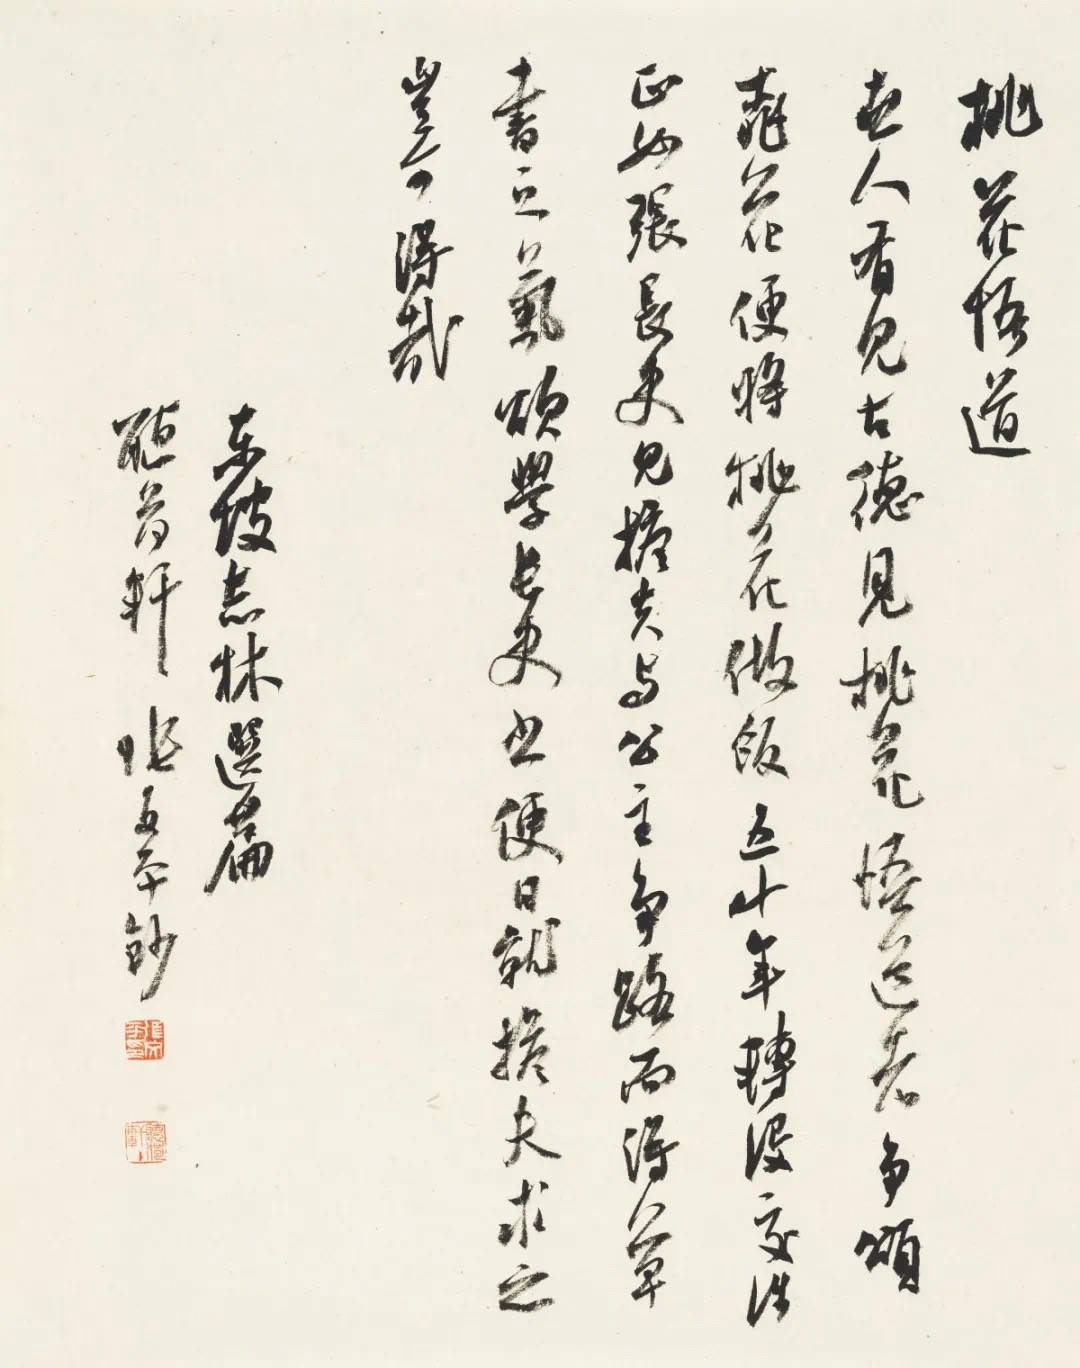 桃花悟道
世人看見古德見桃花悟道者争頌
桃花便將桃花做飯五十年轉没交涉
正如張長史見擔夫与公主争路而得草
書之氣欲學長史书便日就擔夫求之
豈可得哉
东坡志林選篇
聽軒鈔